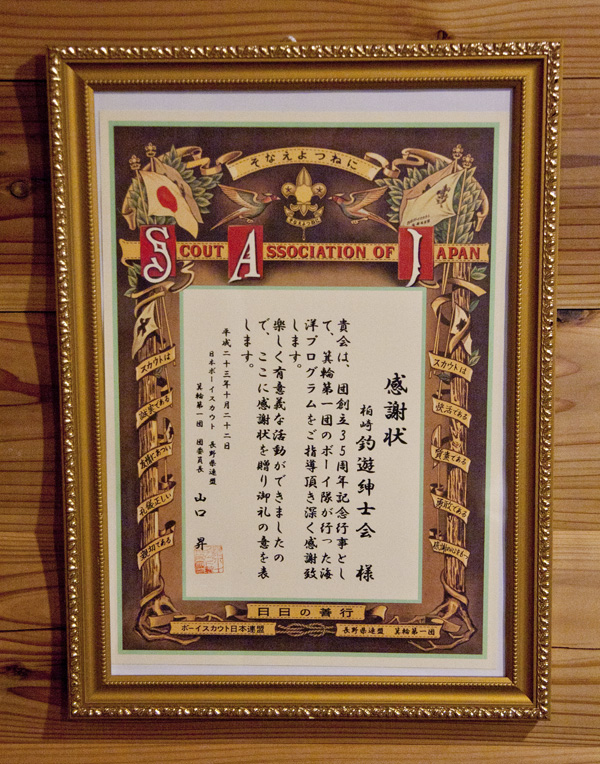 そなえよつねに
SCOUT ASSOCIATION OF JAPAN
感謝状
柏崎 釣遊紳士会 様
貴会は、団創立35周年記念行事とし
て、箕輪第一団のボーイ隊が行った海
洋プログラムをご指導頂き深く感謝致
します。
楽しく有意義な活動ができましたの
で、ここに感謝状を贈り御礼の意を表
します。
平成二十三年十月二十二日
日本ボーイスカウト 長野県連盟
箕輪第一団 団委員長 山口 昇
スカウトは
誠実である
友情にあつい
礼儀正しい
親切である
スカウトは
快活である
質素である
勇敢である
日日の善行
ボーイスカウト日本連盟
長野県連盟 箕輪第一団